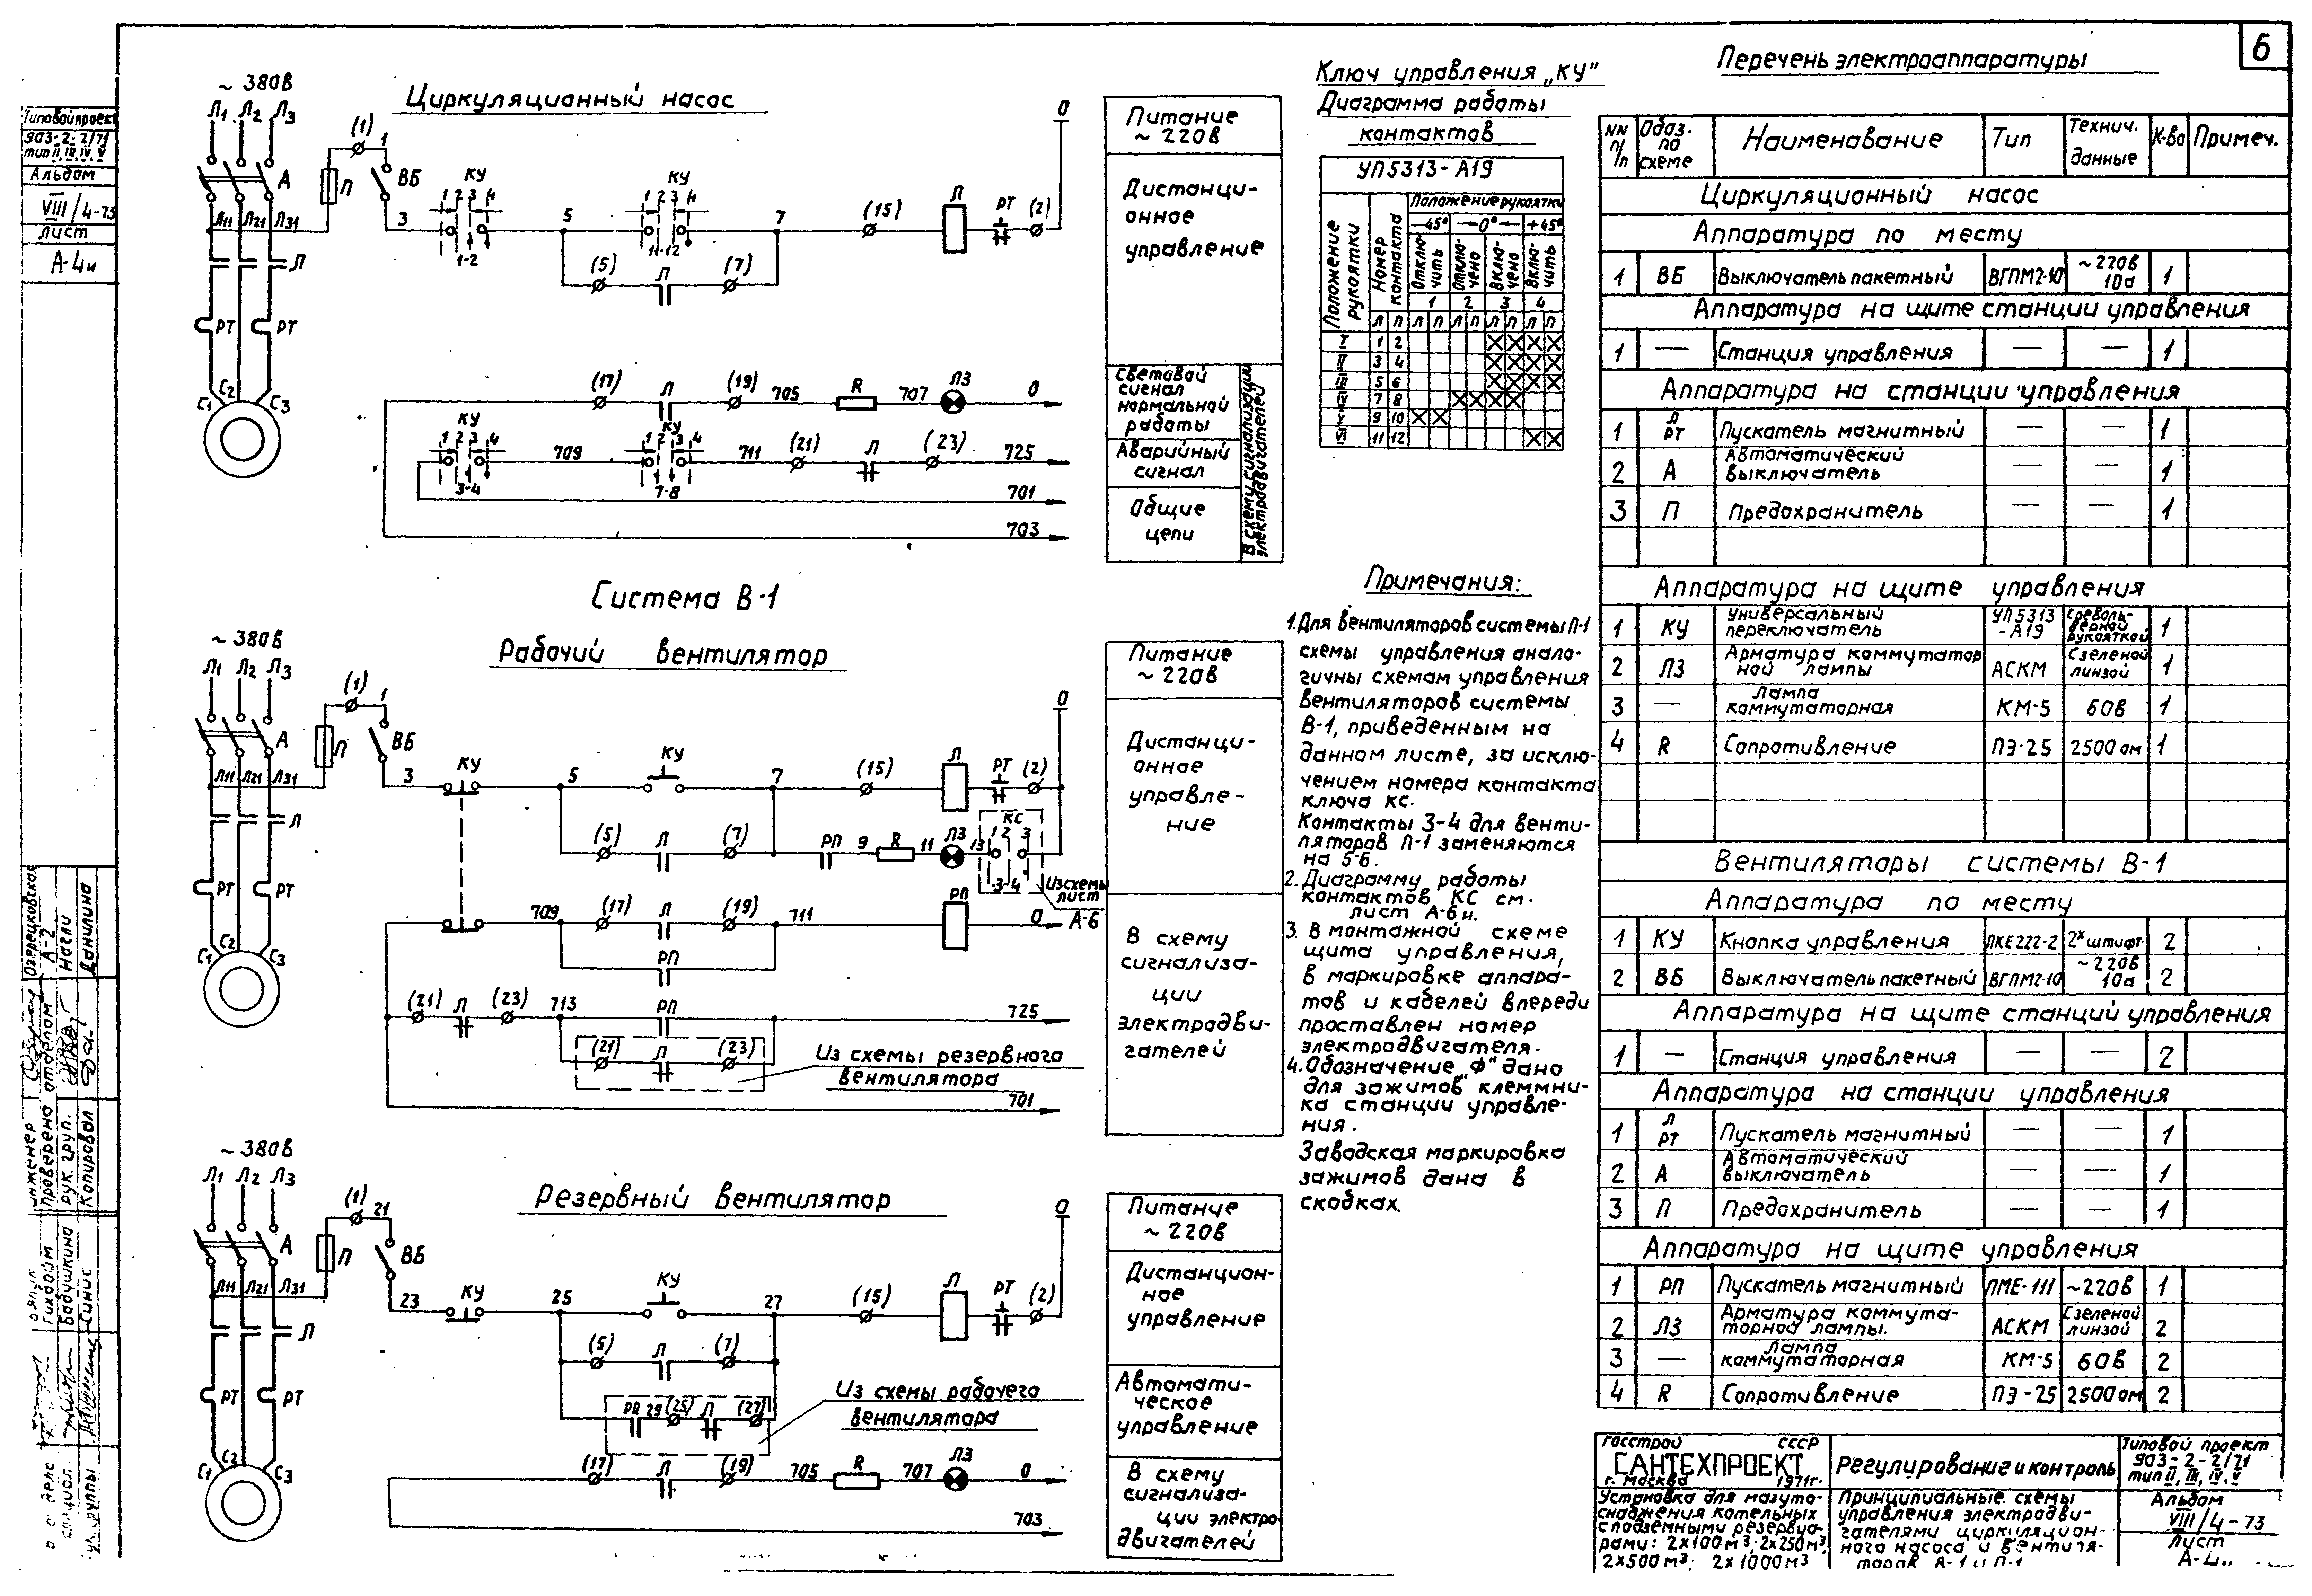 6
Типовой проект
903-2-2/71
тип II, III, IV, V
Альбом
VIII/4-73
Лист
А-4и
~380в
Л1 Л2 Л3
Циркуляционный насос
(1) 1
А
П
ВБ
КУ
КУ
1 2 3 4
1 2 3 4
Л11 Л21 Л31
3
1-2
5
11-12
7
(15)
Л
РТ
(2)
0
(5) Л (7)
Л
РТ РТ
С1 С2 С3
(17) Л (19) 705 R 707 ЛЗ 0
КУ
КУ
1 2 3 4
1 2 3 4
3-4
709
7-8
711
(21)
Л
(23)
725
701
703
Питание
~220в
Дистанци-
онное
управление
Световой
сигнал
нормальной
работы
Аварийный
сигнал
Общие
цепи
В схему сигнализации
электродвигателей
Система В-1
Рабочий вентилятор
~380в
Л1 Л2 Л3
(1) 1
А
П
ВБ
Л11 Л21 Л31
3 КУ 5 КУ 7 (15) Л РТ (2) 0
Л
(5) Л (7) РП 9 R 11 ЛЗ 13
КС
1 2 3
3-4
Из схемы
лист
А-6
РТ РТ
С1 С2 С3
709 (17) Л (19) 711 РП 0
РП
(21) Л (23) 713 РП 725
(21) Л (23)
Из схемы резервного
вентилятора
701
Питание
~220в
Дистанци-
онное
управле-
ние
В схему
сигнализа-
ции
электродви-
гателей
~380в
Л1 Л2 Л3
Резервный вентилятор
(1) 21
А
П
ВБ
Л11 Л21 Л31
23 КУ 25 КУ 27 (15) Л РТ (2) 0
Л
(5) Л (7)
РП 29 (25) Л (27)
Из схемы рабочего
вентилятора
РТ РТ
С1 С2 С3
(17) Л (19) 705 R 707 ЛЗ 0
703
Питание
~220в
Дистанцион-
ное
управление
Автомати-
ческое
управление
В схему
сигнализа-
ции электро-
двигателей
Ключ управления „КУ"
Диаграмма работы
контактов
УП5313-А19
Положение рукоятки
Номер контакта
Положение рукоятки
-45° 0° +45°
Отклю-чить
Отклю-чено
Вклю-чено
Вклю-чить
1 2 3 4
Л П Л П Л П Л П Л П
I 1 2 X X X X
II 3 4 X X X X
III 5 6 X X X X
IV 7 8 X X X X
V 9 10 X X
VI 11 12 X X
Примечания:
1. Для вентиляторов системы П-1
схемы управления анало-
гичны схемам управления
вентиляторов системы
В-1, приведенным на
данном листе, за исклю-
чением номера контакта
ключа КС.
Контакты 3-4 для венти-
ляторов П-1 заменяются
на 5-6.
2. Диаграмму работы
контактов КС см.
лист А-6и.
3. В монтажной схеме
щита управления,
в маркировке аппара-
тов и кабелей впереди
проставлен номер
электродвигателя.
4. Обозначение „Ф" дано
для зажимов клеммни-
ка станции управле-
ния.
Заводская маркировка
зажимов дана в
скобках.
Перечень электроаппаратуры
NN п/п Обоз. по схеме Наименование Тип Технич. данные К-во Примеч.
Циркуляционный насос
Аппаратура по месту
1 ВБ Выключатель пакетный ВГПМ2-10 ~220в 10а 1
Аппаратура на щите станции управления
1 — Станция управления — — 1
Аппаратура на станции управления
1 Л РТ Пускатель магнитный — — 1
2 А Автоматический выключатель — — 1
3 П Предохранитель — — 1
Аппаратура на щите управления
1 КУ Универсальный переключатель УП5313-А19 С револь-верной рукояткой 1
2 ЛЗ Арматура коммутатор ной лампы АСКМ С зеленой линзой 1
3 — Лампа коммутаторная КМ-5 60в 1
4 R Сопротивление ПЭ-25 2500 ом 1
Вентиляторы системы В-1
Аппаратура по месту
1 КУ Кнопка управления ПКЕ222-2 2х штифт. 2
2 ВБ Выключатель пакетный ВГПМ2-10 ~220в 10а 2
Аппаратура на щите станций управления
1 — Станция управления — — 2
Аппаратура на станции управления
1 Л РТ Пускатель магнитный — — 1
2 А Автоматический выключатель — — 1
3 П Предохранитель — — 1
Аппаратура на щите управления
1 РП Пускатель магнитный ПМЕ-111 ~220в 1
2 ЛЗ Арматура коммута-торной лампы. АСКМ С зеленой линзой 2
3 — Лампа коммутаторная КМ-5 60в 2
4 R Сопротивление ПЭ-25 2500 ом 2
Госстрой СССР
САНТЕХПРОЕКТ
г. Москва 1971г.
Регулирование и контроль
Типовой проект
903-2-2/71
тип II, III, IV, V
Установка для мазуто-
снабжения котельных
с подземными резервуа-
рами: 2х100м³; 2х250м³;
2х500м³; 2х1000м³
Принципиальные схемы
управления электродви-
гателями циркуляцион-
ного насоса и вентиля-
торов В-1 и П-1.
Альбом
VIII/4-73
Лист
А-4и
Озерецковская
А-2
Нагли
Данилина
инженер
Проверено отделом
рук. груп.
Копировал
Бабушкина
Синис